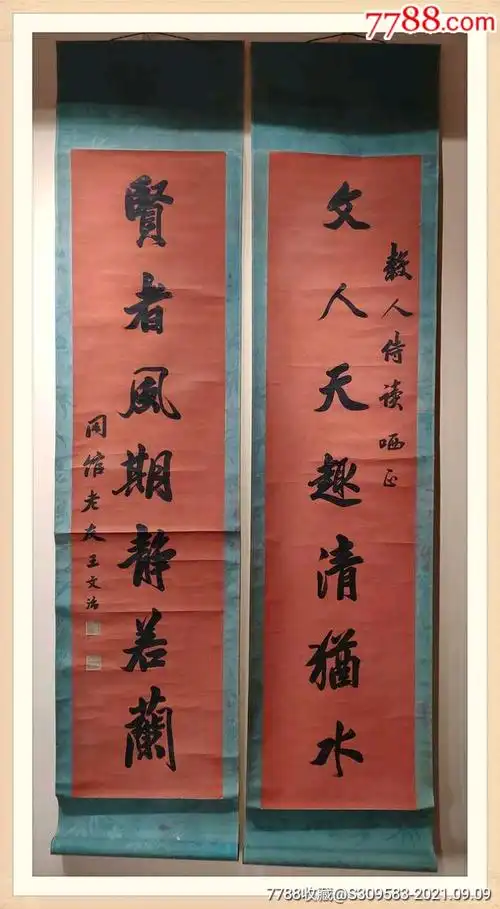 7788.com
文人天趣清猶水
毅人侍读哂正
賢者風期静若蘭
同馆老友王文治
7788收藏@S309583-2021.09.09